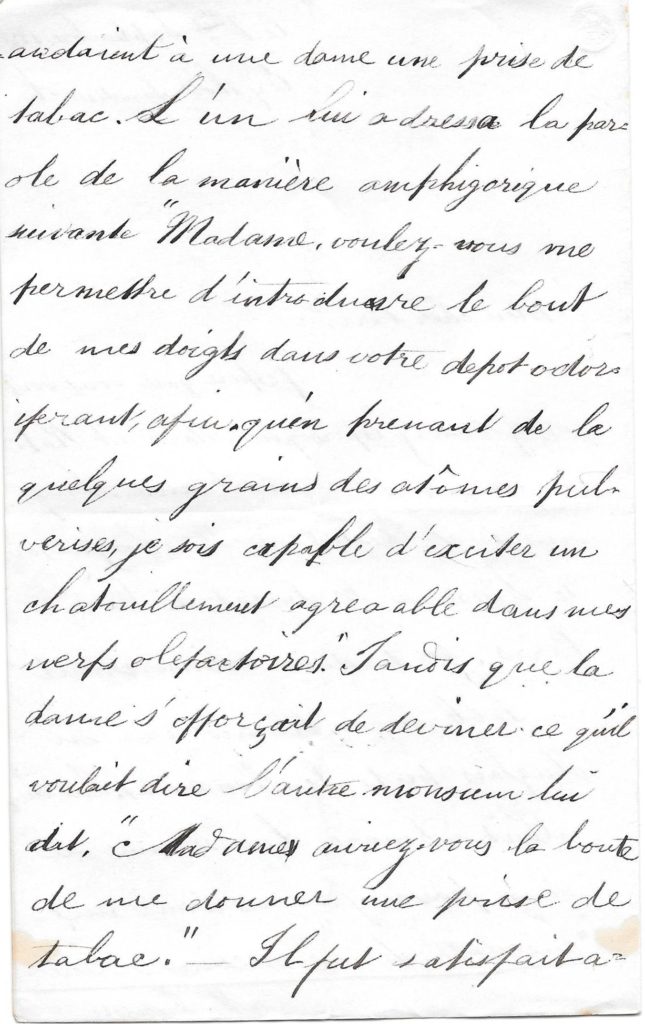 andaient à une dame une prise de
tabac. L'un lui adressa la par=
ole de la manière amphigorique
suivante "Madame, voulez-vous me
permettre d'introduire le bout
de mes doigts dans votre depot odor=
iferant, afin qu'en prenant de la
quelques grains des atômes pul-
verises, je sois capable d'exciter un
chatouillement agreaable dans mes
nerfs olefactoires." Tandis que la
dame s'efforçait de deviner ce qu'il
voulait dire l'autre monsieur lui
dit, "Madame auriez-vous la bonte
de me donner une prise de
tabac." — Il fut satisfait a=